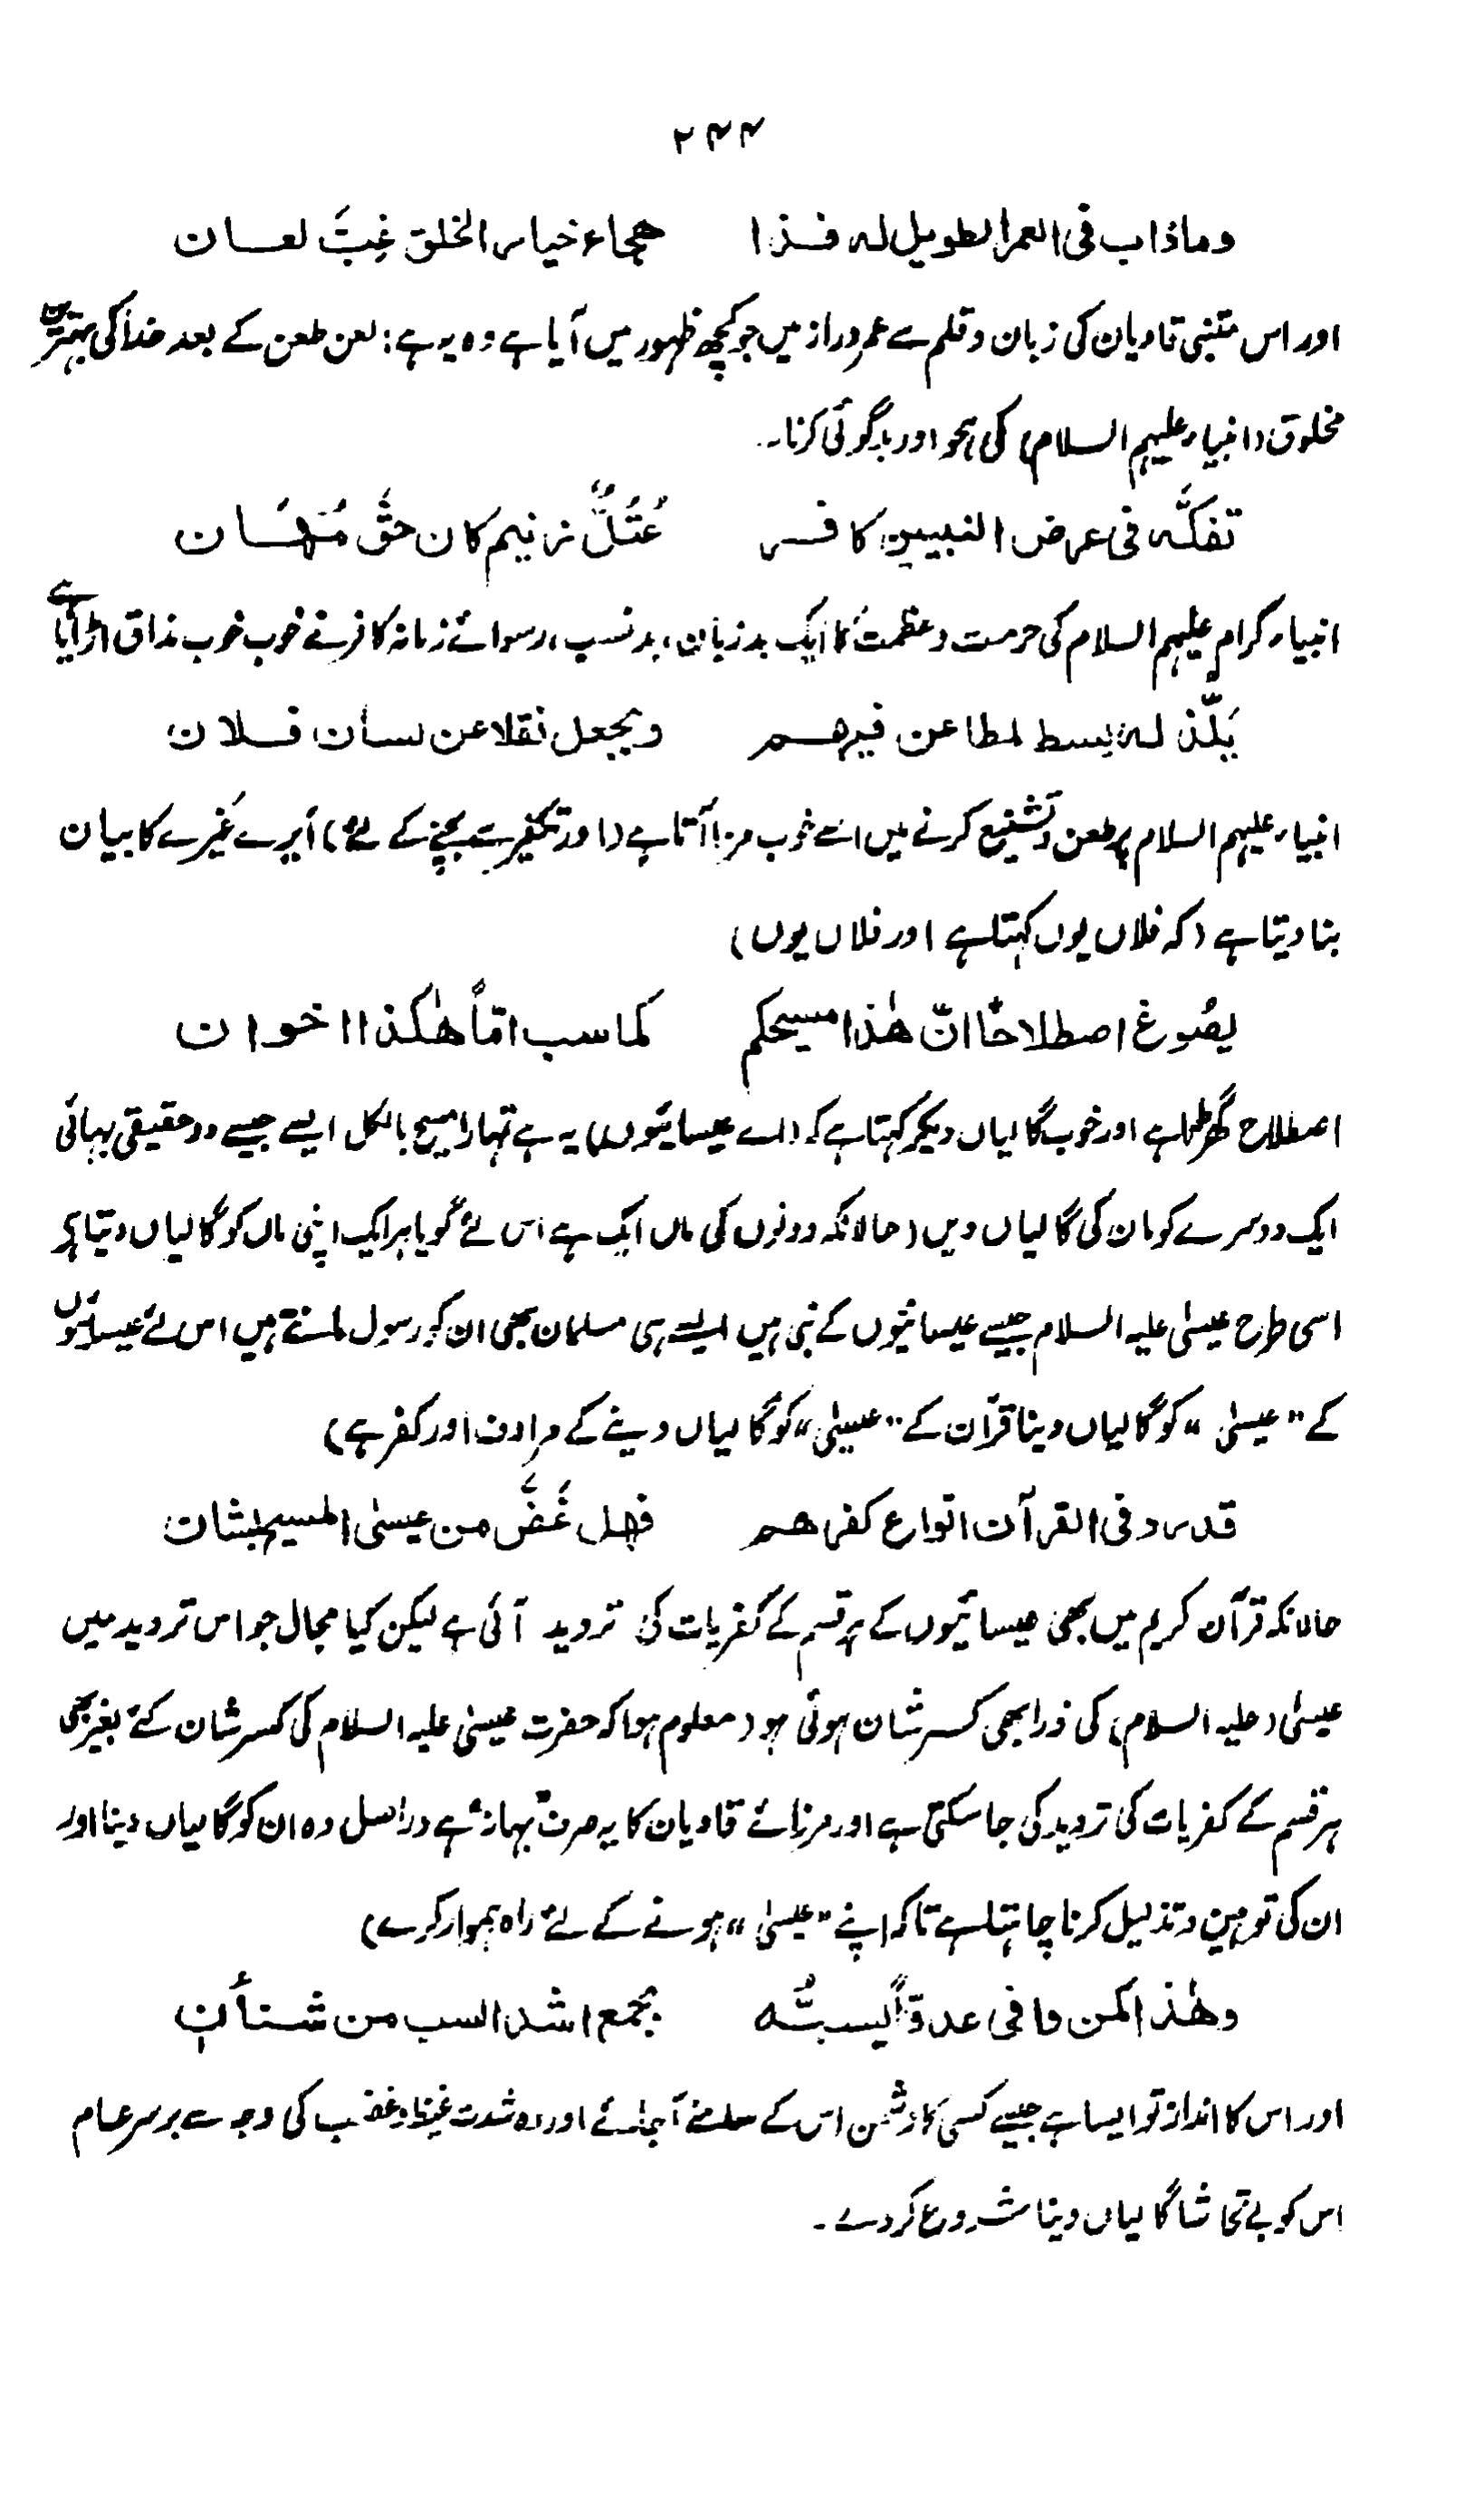 ۲۴۴
وماذاب فی العمر الطویل له فذا      هجاء خیار الخلق غِبَّ لعان
اور اس متنبی قادیان کی زبان و قلم سے عمر دراز میں جو کچھ ظہور میں آیا ہے وہ یہ ہے: لعن طعن کے بعد خدا کی بہترین
مخلوق (انبیاء علیہم السلام) کی ہجو اور بدگوئی کرنا۔
تفکّه فی عرض النبیین کافر      عُتُلٌّ زنیم کان حقَّ مُهَان
انبیاء کرام علیہم السلام کی حرمت و عظمت کا ایک بد زبان، بد نسب، رسوائے زمانہ کافر نے خوب خوب مذاق اڑایا ہے
یَلَذّ له بسط لمطاعن فیهم      ویجعل نقلا عن لسان فلان
انبیاء علیہم السلام پر طعن و تشنیع کرنے میں اسے خوب مزا آتا ہے (اور تکفیر سے بچنے کے لئے) ایرے غیرے کا بیان
بنا دیتا ہے (کہ فلاں یوں کہتا ہے اور فلاں یوں)
یصُوغ اصطلاحًا انّ هٰذا مسیحکم      کما سب امّاً هٰکذا اخوان
اصطلاح گھڑتا ہے اور خوب گالیاں دیکر کہتا ہے کہ (اے عیسائیوں) یہ ہے تمہارا مسیح بالکل ایسے جیسے دو حقیقی بھائی
ایک دوسرے کو ماں کی گالیاں دیں (حالانکہ دونوں کی ماں ایک ہے اس لئے گویا ہر ایک اپنی ماں کو گالیاں دیتا ہے
اسی طرح عیسیٰ علیہ السلام جیسے عیسائیوں کے نبی ہیں ایسے ہی مسلمان بھی ان کو رسول مانتے ہیں اس لئے عیسائیوں
کے "عیسیٰ" کو گالیاں دینا قرآن کے "عیسیٰ" کو گالیاں دینے کے مرادف اور کفر ہے)
قد رد فی القرآن انواع کفرهم      فهل غَضَّ من عیسیٰ المسیح بشان
حالانکہ قرآن کریم میں بھی عیسائیوں کے ہر قسم کے کفریات کی تردید آئی ہے لیکن کیا مجال جو اس تردید میں
عیسیٰ (علیہ السلام) کی ذرا بھی کسر شان ہوئی ہو (معلوم ہوا کہ حضرت عیسیٰ علیہ السلام کی کسر شان کئے بغیر بھی
ہر قسم کے کفریات کی تردید کی جا سکتی ہے اور مرزائے قادیان کا یہ صرف "بہانہ" ہے دراصل وہ ان کو گالیاں دینا اور
ان کی توہین و تذلیل کرنا چاہتا ہے تاکہ اپنے "عیسیٰ" ہونے کے لئے راہ ہموار کرے)
وهٰذا کمن وافی عدوّاً یسبّه      بجمع اشد السب من شنأن
اور اس کا انداز تو ایسا ہے جیسے کسی کا دشمن اس کے سامنے آجائے اور وہ شدت غیظ و غضب کی وجہ سے برسر عام
اس کو بے تحاشا گالیاں دینا شروع کر دے۔